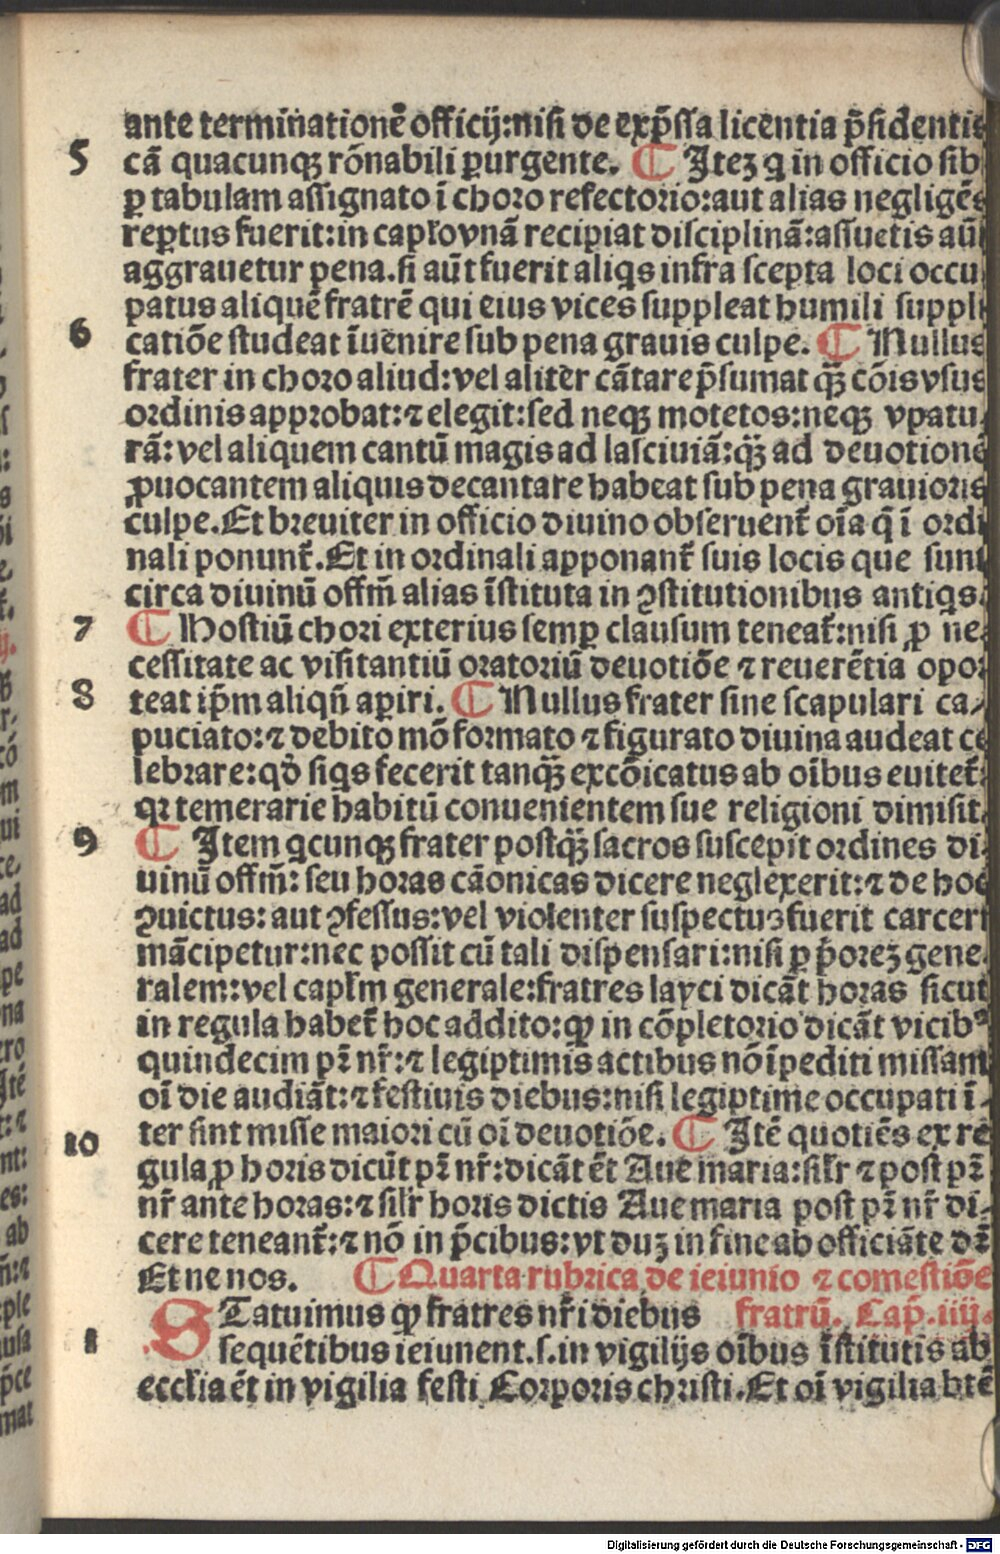 ante terminationē officij:nisi de exp̄ssa licentia p̄sidentis
5 cā quacunqꝫ rōnabili ꝑurgente. ¶ Iteꝫ q in officio sib
ꝑ tabulam assignato ī choro refectorio:aut alias negligēs
reꝑtus fuerit:in capłovnā recipiat disciplinā:assuetis aūt
aggrauetur pena.si aūt fuerit aliqs infra scepta loci occu
patus aliquē fratrē qui eius vices suppleat humili suppli
6 catiōe studeat īuenire sub pena grauis culpe. ¶ Nullus
frater in choro aliud:vel aliter cātare p̄sumat qꝫ̄ cōis vsus
ordinis approbat:⁊ elegit:sed neqꝫ motetos:neqꝫ vpatu⸗
rā:vel aliquem cantū magis ad lasciuiā:qꝫ̄ ad deuotionē
ꝓuocantem aliquis decantare habeat sub pena grauioris
culpe.Et breuiter in officio diuino obseruent̄ oīa q̄ ī ordi
nali ponunt̄.Et in ordinali apponant̄ suis locis que sunt
circa diuinū offm̄ alias īstituta in ꝯstitutionibus antiqs.
7 ¶ Hostiū chori exterius semꝑ clausum teneat̄:nisi ꝓ ne⸗
cessitate ac visitantiū oratoriū deuotiōe ⁊ reuerētia opor
8 teat ip̄m aliqn̄ aꝑiri. ¶ Nullus frater sine scapulari ca⸗
puciato:⁊ debito mō formato ⁊ figurato diuina audeat ce
lebrare:qđ siqs fecerit tanqꝫ̄ excōicatus ab oībus euitet̄:
qꝛ temerarie habitū conuenientem sue religioni dimisit.
9 ¶ Item qcunqꝫ frater postqꝫ̄ sacros suscepit ordines di⸗
uinū offm̄: seu horas cāonicas dicere neglexerit:⁊ de hoc
ꝯuictus: aut ꝯfessus:vel violenter suspectus fuerit carceri
mācipetur:nec possit cū tali dispensari:nisi ꝑ p̄oreꝫ gene⸗
ralem:vel capłm generale:fratres layci dicāt horas sicut
in regula habet̄ hoc addito:ꝙ in cōpletorio dicāt vicibꝰ
quindecim pr̄ nr̄:⁊ legiptimis actibus nō īpediti missam
oī die audiāt:⁊ festiuis diebus:nisi legiptime occupati ī⸗
10 ter sint misse maiori cū oī deuotiōe. ¶ Itē quotiēs ex re
gula ꝓ horis dicūt pr̄ nr̄:dicāt ēt Aue maria:silr̄ ⁊ post pr̄
nr̄ ante horas:⁊ silr̄ horis dictis Aue maria post pr̄ nr̄ di⸗
cere teneant̄:⁊ nō in p̄cibus:vt duꝫ in fine ab officiāte dr̄
Et ne nos. ¶ Quarta rubrica de ieiunio ⁊ comestiōe
STatuimus ꝙ fratres nr̄i diebus fratrū. Cap̄.iiij.
1 sequētibus ieiunent.s.in vigilijs oībus īstitutis ab
ecclīa ēt in vigilia festi Corporis christi.Et oī vigilia btē
Digitalisierung gefördert durch die Deutsche Forschungsgemeinschaft - DFG